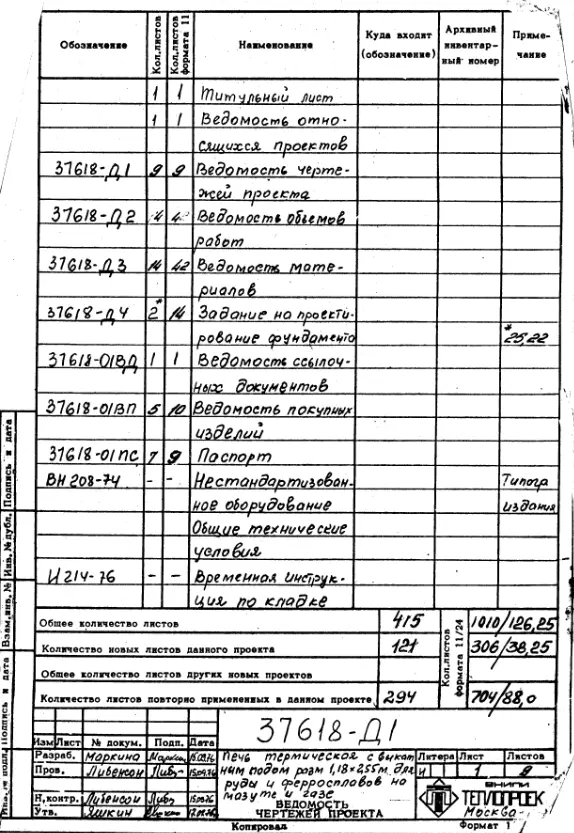 Обозначение Кол.листов Кол.листов формата 11 Наименование Куда входит (обозначение) Архивный инвентарный номер Примечание
1 1 Титульный лист
1 1 Ведомость отно-
сящихся проектов
37618-Д1 9 9 Ведомость черте-
жей проекта
37618-Д2 4 Ведомость объемов
работ
37618-Д3 14 42 Ведомость мате-
риалов
37618-Д4 2* 14 Задание на проекти-
рование фундамента *25,22
37618-01ВД 1 1 Ведомость ссылоч-
ных документов
37618-01ВП 5 10 Ведомость покупных
изделий
37618-01ПС 7 9 Паспорт
ВН208-74 - - Нестандартизован- Типогр
ное оборудование издания
Общие технические
условия
И214-76 - - Временная инструк-
ция по кладке
Общее количество листов 415 Кол.листов формата 11/24 1010/126,25
Количество новых листов данного проекта 121 306/38,25
Общее количество листов других новых проектов
Количество листов повторно примененных в данном проекте 294 704/88,0
37618-Д1
Изм Лист № докум. Подп. Дата
Разраб. Маркина
Пров. Либенсон
Н.контр. Либенсон
Утв. Эшкин
Печь термическая с выкат
ным подом разм 1,18×2,55м для
руды и ферросплавов на
мазуте и газе
ВЕДОМОСТЬ
ЧЕРТЕЖЕЙ ПРОЕКТА
Литера Лист Листов
И 1 9
ВНИПИ
ТЕПЛОПРОЕКТ
Москва
Копировал Формат 1
Подпись и дата
Инв. № дубл.
Взам.инв. №
Подпись и дата